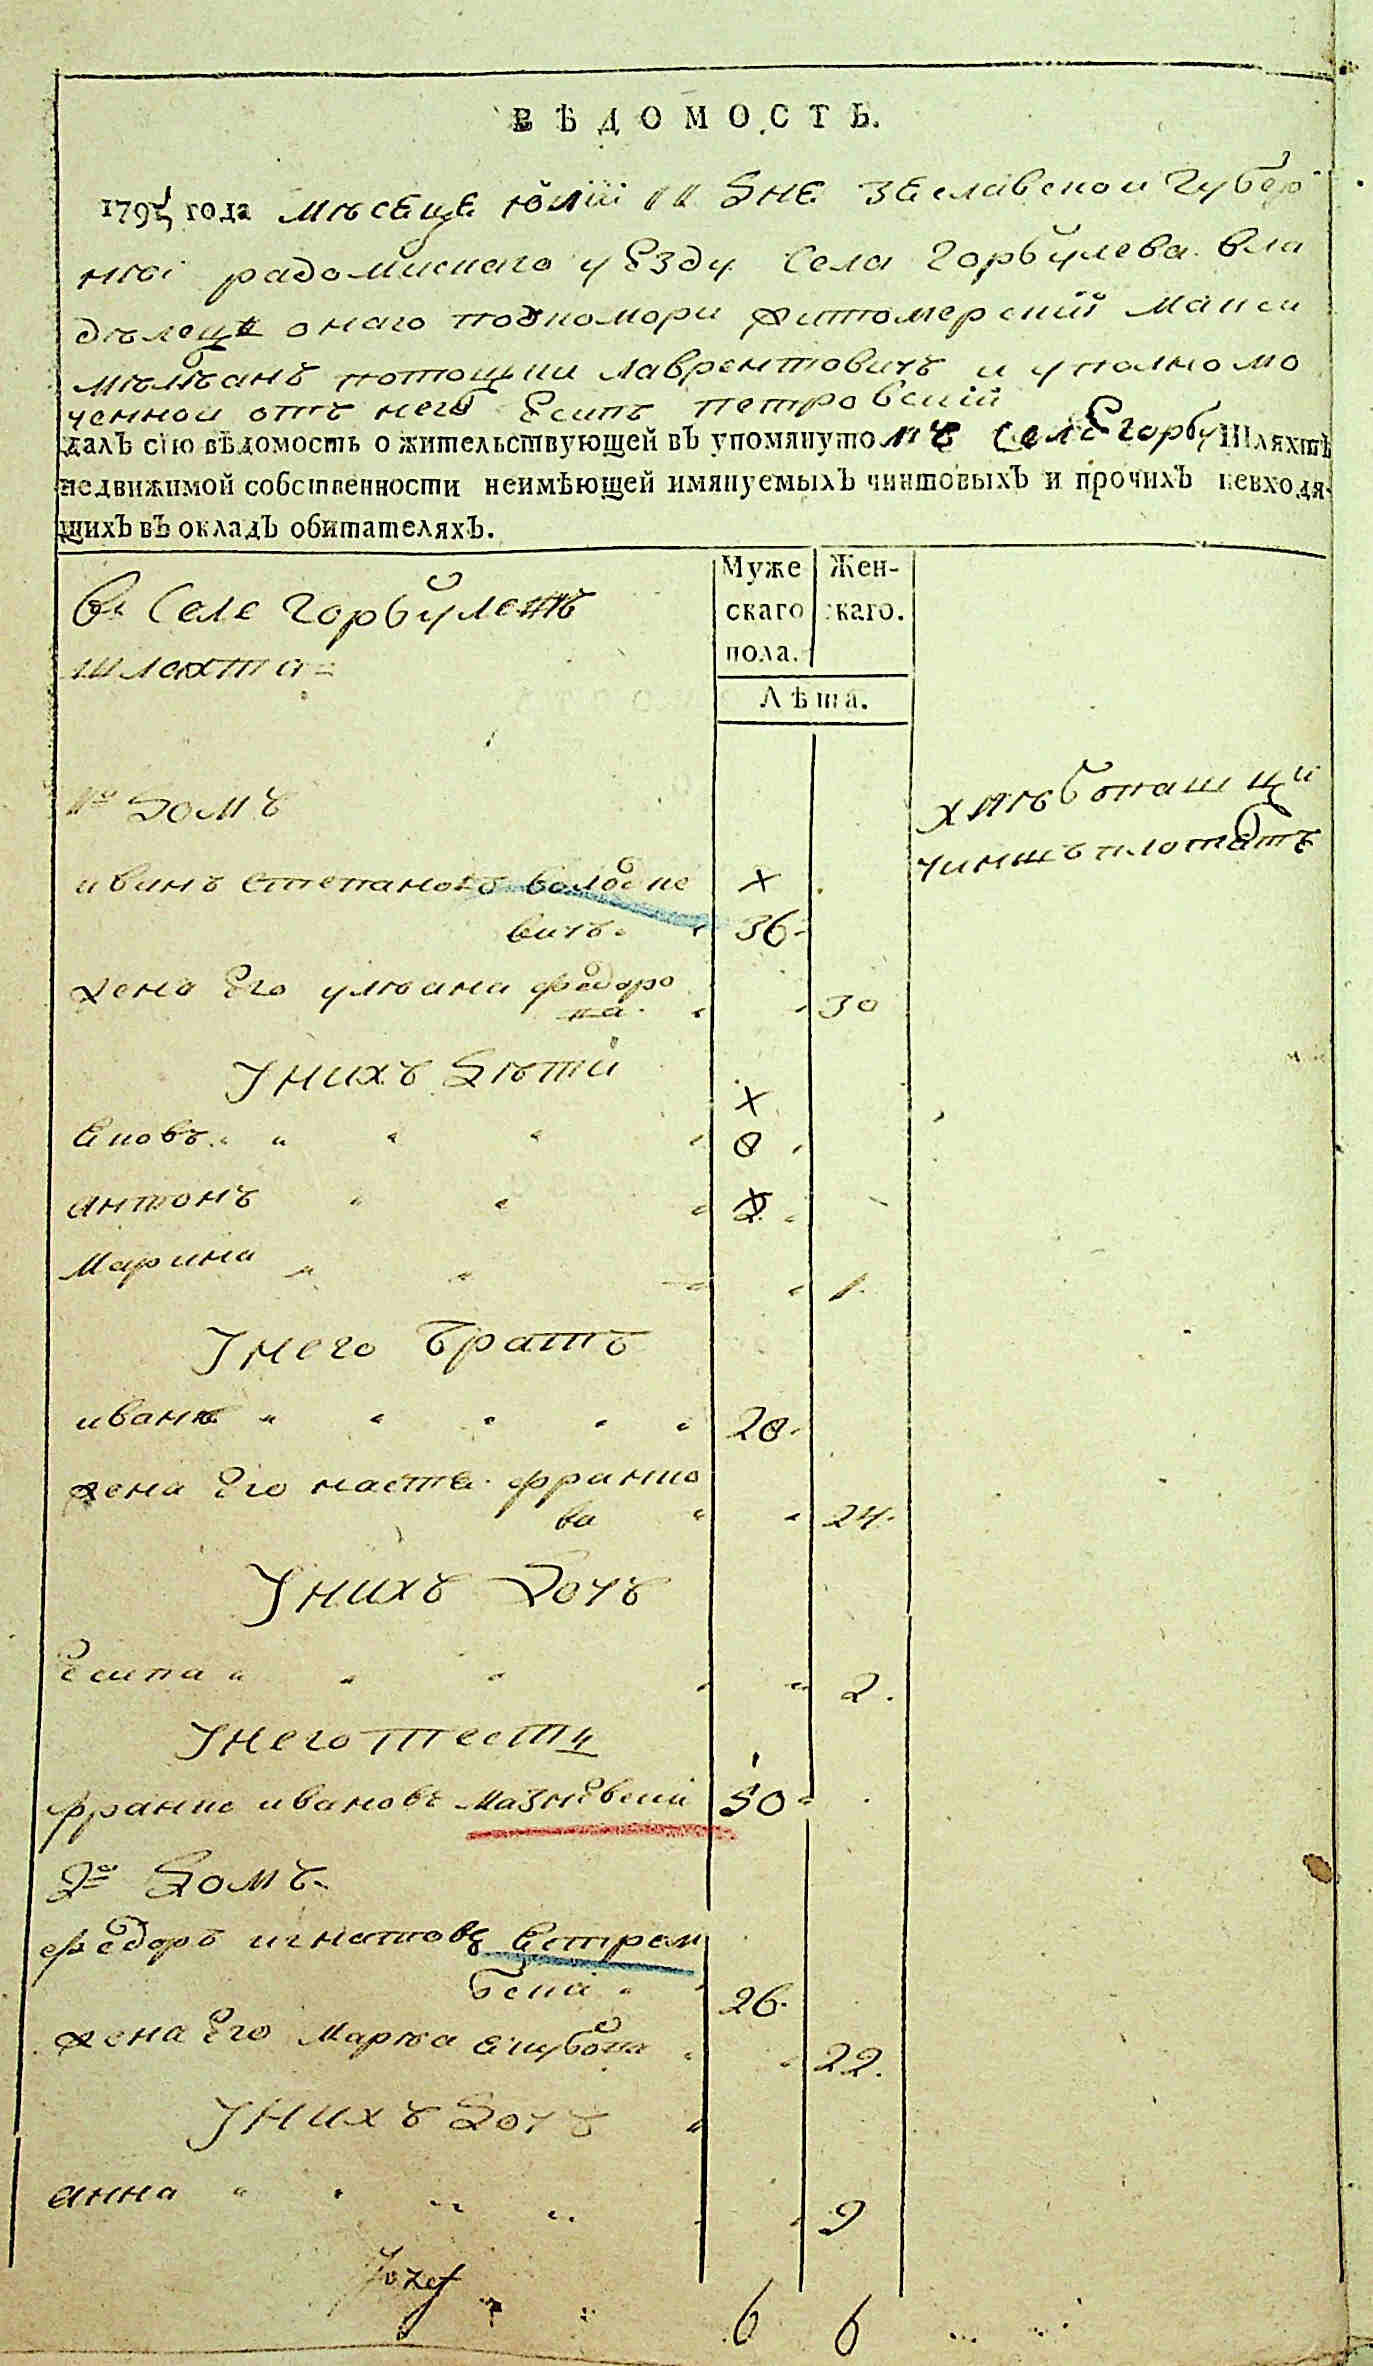 ВѢДОМОСТЬ.
1795 года мѣсеце юлііі 11 дне Зеславской губер
ниі радомискаго уезду села Горбулева вла
дѣлецъ онаго подкомори житомерскій Макси
мѣлѣанъ потоцкии лаврентовичъ и уполномо
ченной отъ него Есипъ петровскій
далъ сію вѣдомость о жительствующей въ упомянутомъ селе Горбу Шляхтѣ
недвижимой собственности неимѣющей имянуемыхъ чиншовыхъ и прочихъ невходя-
щихъ въ окладъ обитателяхъ.
Муже Жен-
скаго скаго.
пола.
Лѣта.
въ селе Горбулевѣ
шляхта
1й домъ
хлѣбопашци
чиншъ плотятъ
иванъ степановъ
вичъ. 36
жена Его улѣана федоро
на. 30
У нихъ дѣти
Яковъ 8
антонъ 2
Марина 1
У него братъ
иванъ 28
жена Его настя франко
ва 24
У нихъ дочъ
Есипа 2
У него тестъ
франко ивановъ Мазновскій 50
2й домъ
федоръ игнатовъ Ястрем
бскій 26
жена Его Маръа 22
У нихъ дочъ
анна 9
Jozef
6 6